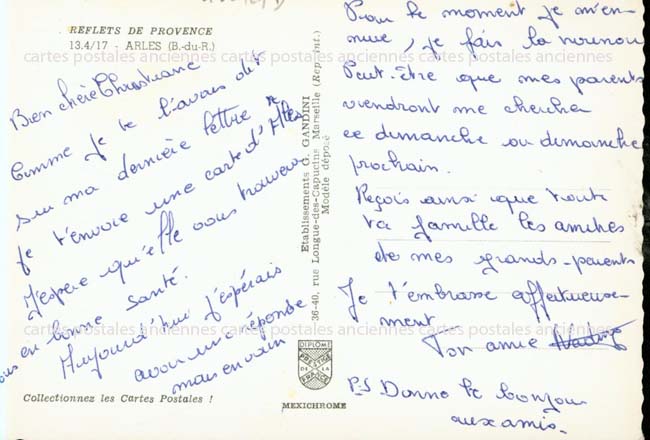 REFLETS DE PROVENCE
13.4/17 - ARLES (B.-du-R.)
cartes postales anciennes cartes postales anciennes cartes postales anciennes
Bien chère Christiane
Comme je te l'avais dit
sur ma dernière lettre
je t'envoie une carte d'Arles
J'espère qu'elle vous trouvera
tous en bonne santé.
Aujourd'hui j'espérais
avoir une réponse
mais en vain
Collectionnez les Cartes Postales !
Etablissements G. GANDINI
36-40, rue Longue-des-Capucins, Marseille (Rep. int.)
Modèle déposé
DIPLOME
PRESTIGE
DE LA
FRANCE
MEXICHROME
Pour le moment je m'en-
nuie, je fais la nounou
Peut-être que mes parents
viendront me chercher
ce dimanche ou dimanche
prochain.
Reçois ainsi que toute
ta famille les amitiés
de mes grands-parents
Je t'embrasse affectueuse-
ment
Ton amie
P.S. Donne le bonjour
aux amis.
cartes postales anciennes cartes postales anciennes cartes postales anciennes